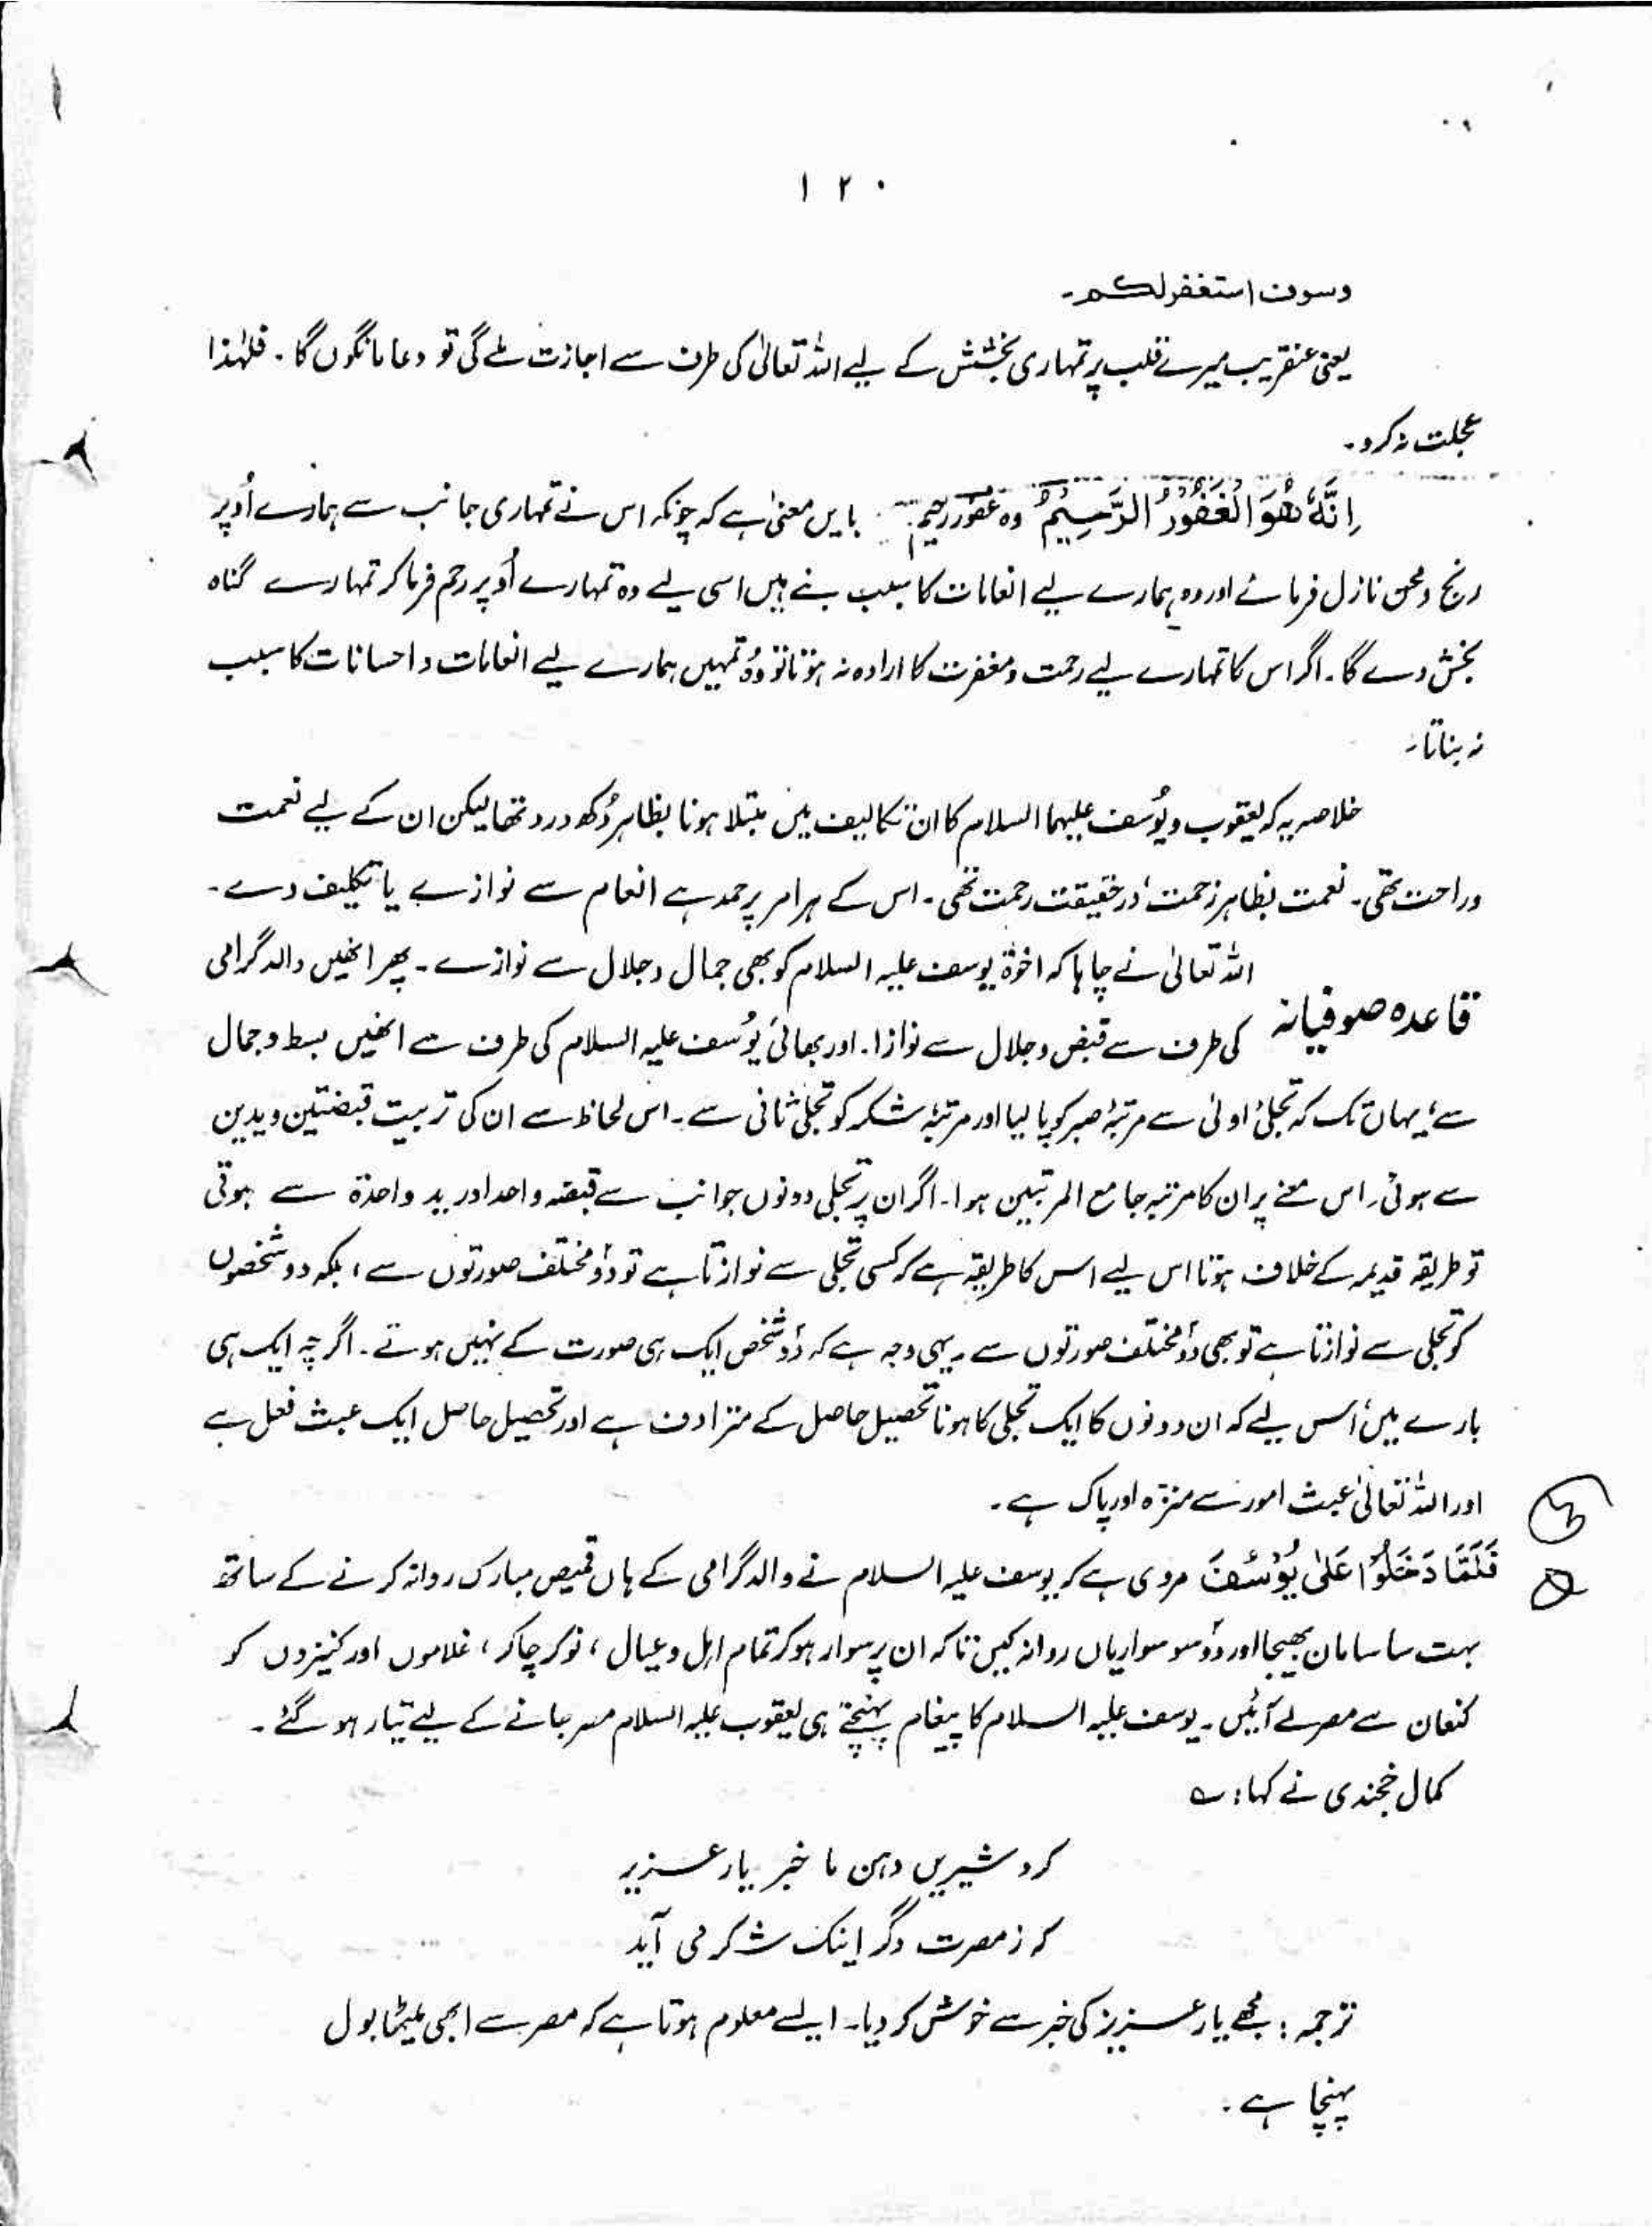 ۱۲۰
وسوف استغفرلکم۔
یعنی عنقریب میرے قلب پر تمہاری بخشش کے لیے اللہ تعالیٰ کی طرف سے اجازت ملے گی تو دعا مانگوں گا۔ فلہٰذا
عجلت نہ کرو۔
اِنَّهٗ هُوَ الْغَفُوْرُ الرَّحِيْمُ وہ غفور رحیم ہے۔ بایں معنیٰ ہے کہ چونکہ اس نے تمہاری جانب سے ہمارے اُوپر
رنج و محن نازل فرمائے اور وہ ہمارے لیے انعامات کا سبب بنے ہیں اسی لیے وہ تمہارے اُوپر رحم فرما کر تمہارے گناہ
بخش دے گا۔ اگر اس کا تمہارے لیے رحمت و مغفرت کا ارادہ نہ ہوتا تو وہُ تمہیں ہمارے لیے انعامات و احسانات کا سبب
نہ بناتا۔
خلاصہ یہ کہ یعقوب و یُوسف علیہما السلام کا ان تکالیف میں مبتلا ہونا بظاہر دُکھ درد تھا لیکن ان کے لیے نعمت
و راحت تھی۔ نعمت بظاہر زحمت، درحقیقت رحمت تھی۔ اس کے ہر امر پر حمد ہے انعام سے نوازے یا تکلیف دے۔
اللہ تعالیٰ نے چاہا کہ اخوۃ یوسف علیہ السلام کو بھی جمال و جلال سے نوازے۔ پھر انھیں والد گرامی
قاعدہ صوفیانہ
کی طرف سے قبض و جلال سے نوازا۔ اور بھائی یُوسف علیہ السلام کی طرف سے انھیں بسط و جمال
سے، یہاں تک کہ تجلیٔ اولیٰ سے مرتبۂ صبر کو پا لیا اور مرتبۂ شکر کو تجلی ثانی سے۔ اس لحاظ سے ان کی تربیت قبضتین و یدین
سے ہوئی۔ اس معنے پر ان کا مرتبہ جامع المرتبتین ہوا۔ اگر ان پر تجلی دونوں جوانب سے قبضہ واحد اور ید واحدۃ سے ہوتی
تو طریقہ قدیمہ کے خلاف ہوتا اس لیے اس کا طریقہ ہے کہ کسی تجلی سے نوازتا ہے تو دوُ مختلف صورتوں سے، بلکہ دو شخصوں
کو تجلی سے نوازتا ہے تو بھی دوُ مختلف صورتوں سے۔ یہی وجہ ہے کہ دوُ شخص ایک ہی صورت کے نہیں ہوتے۔ اگرچہ ایک ہی
بارے میں، اس لیے کہ ان دونوں کا ایک تجلی کا ہونا تحصیل حاصل کے مترادف ہے اور تحصیل حاصل ایک عبث فعل ہے
اور اللہ تعالیٰ عبث امور سے منزہ اور پاک ہے۔
فَلَمَّا دَخَلُوْا عَلٰى يُوْسُفَ مروی ہے کہ یوسف علیہ السلام نے والد گرامی کے ہاں قمیص مبارک روانہ کرنے کے ساتھ
بہت سا سامان بھیجا اور دوُ سو سواریاں روانہ کیں تاکہ ان پر سوار ہو کر تمام اہل و عیال، نوکر چاکر، غلاموں اور کنیزوں کو
کنعان سے مصر لے آئیں۔ یوسف علیہ السلام کا پیغام پہنچتے ہی یعقوب علیہ السلام مصر جانے کے لیے تیار ہو گئے۔
کمال خجندی نے کہا: ؎
کرد شیریں دہن ما خبر یار عزیز
کہ زمصرت دگر اینک شکر می آید
ترجمہ: مجھے یار عزیز کی خبر سے خوش کر دیا۔ ایسے معلوم ہوتا ہے کہ مصر سے ابھی میٹھا بول
پہنچا ہے۔